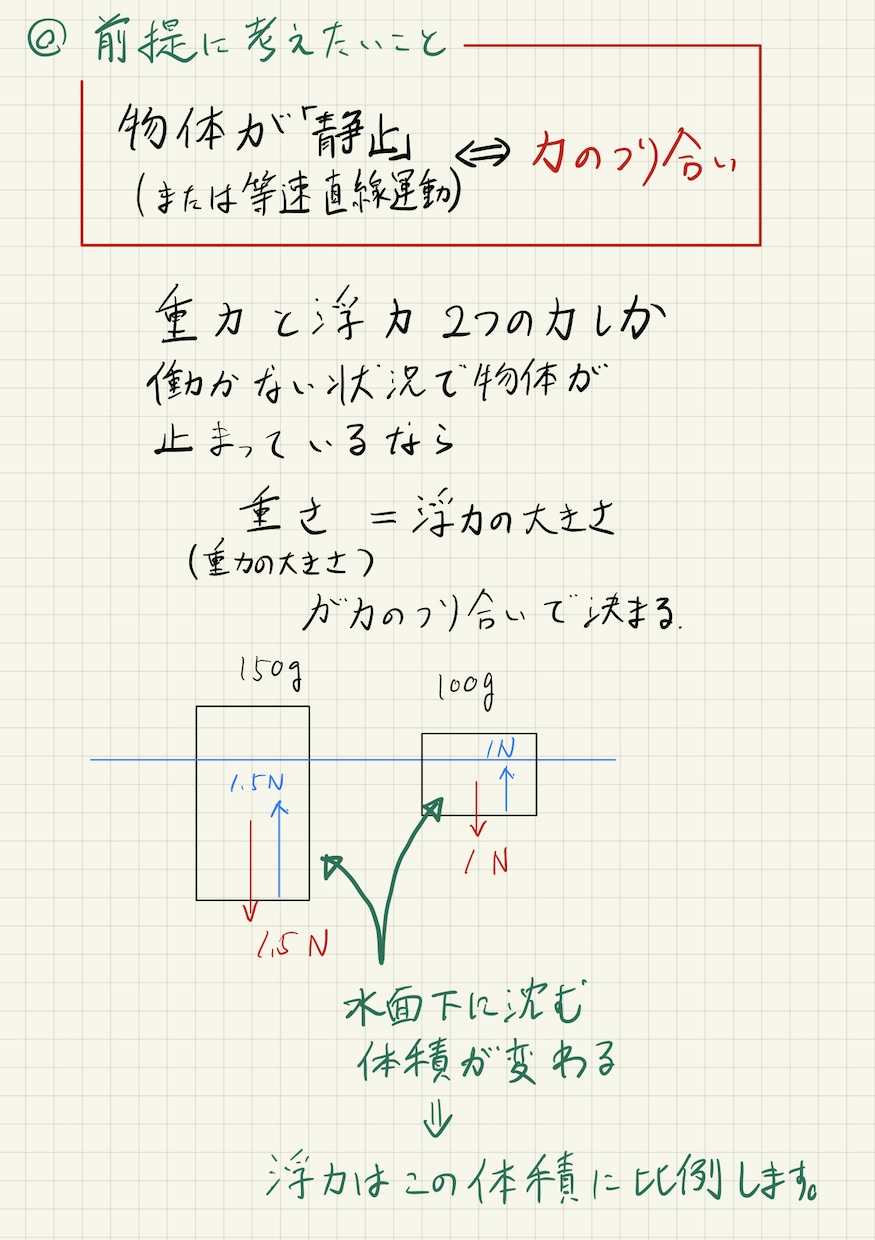 @ 前提に考えたいこと
物体が「静止」
(または等速直線運動)
⇔ 力のつり合い
重力と浮力 2つの力しか
働かない状況で物体が
止まっているなら
重さ = 浮力の大きさ
(重力の大きさ)
が力のつり合いで決まる.
150g
100g
1.5N
1N
1N
1.5N
水面下に沈む
体積が変わる
⇓
浮力はこの体積に比例します。